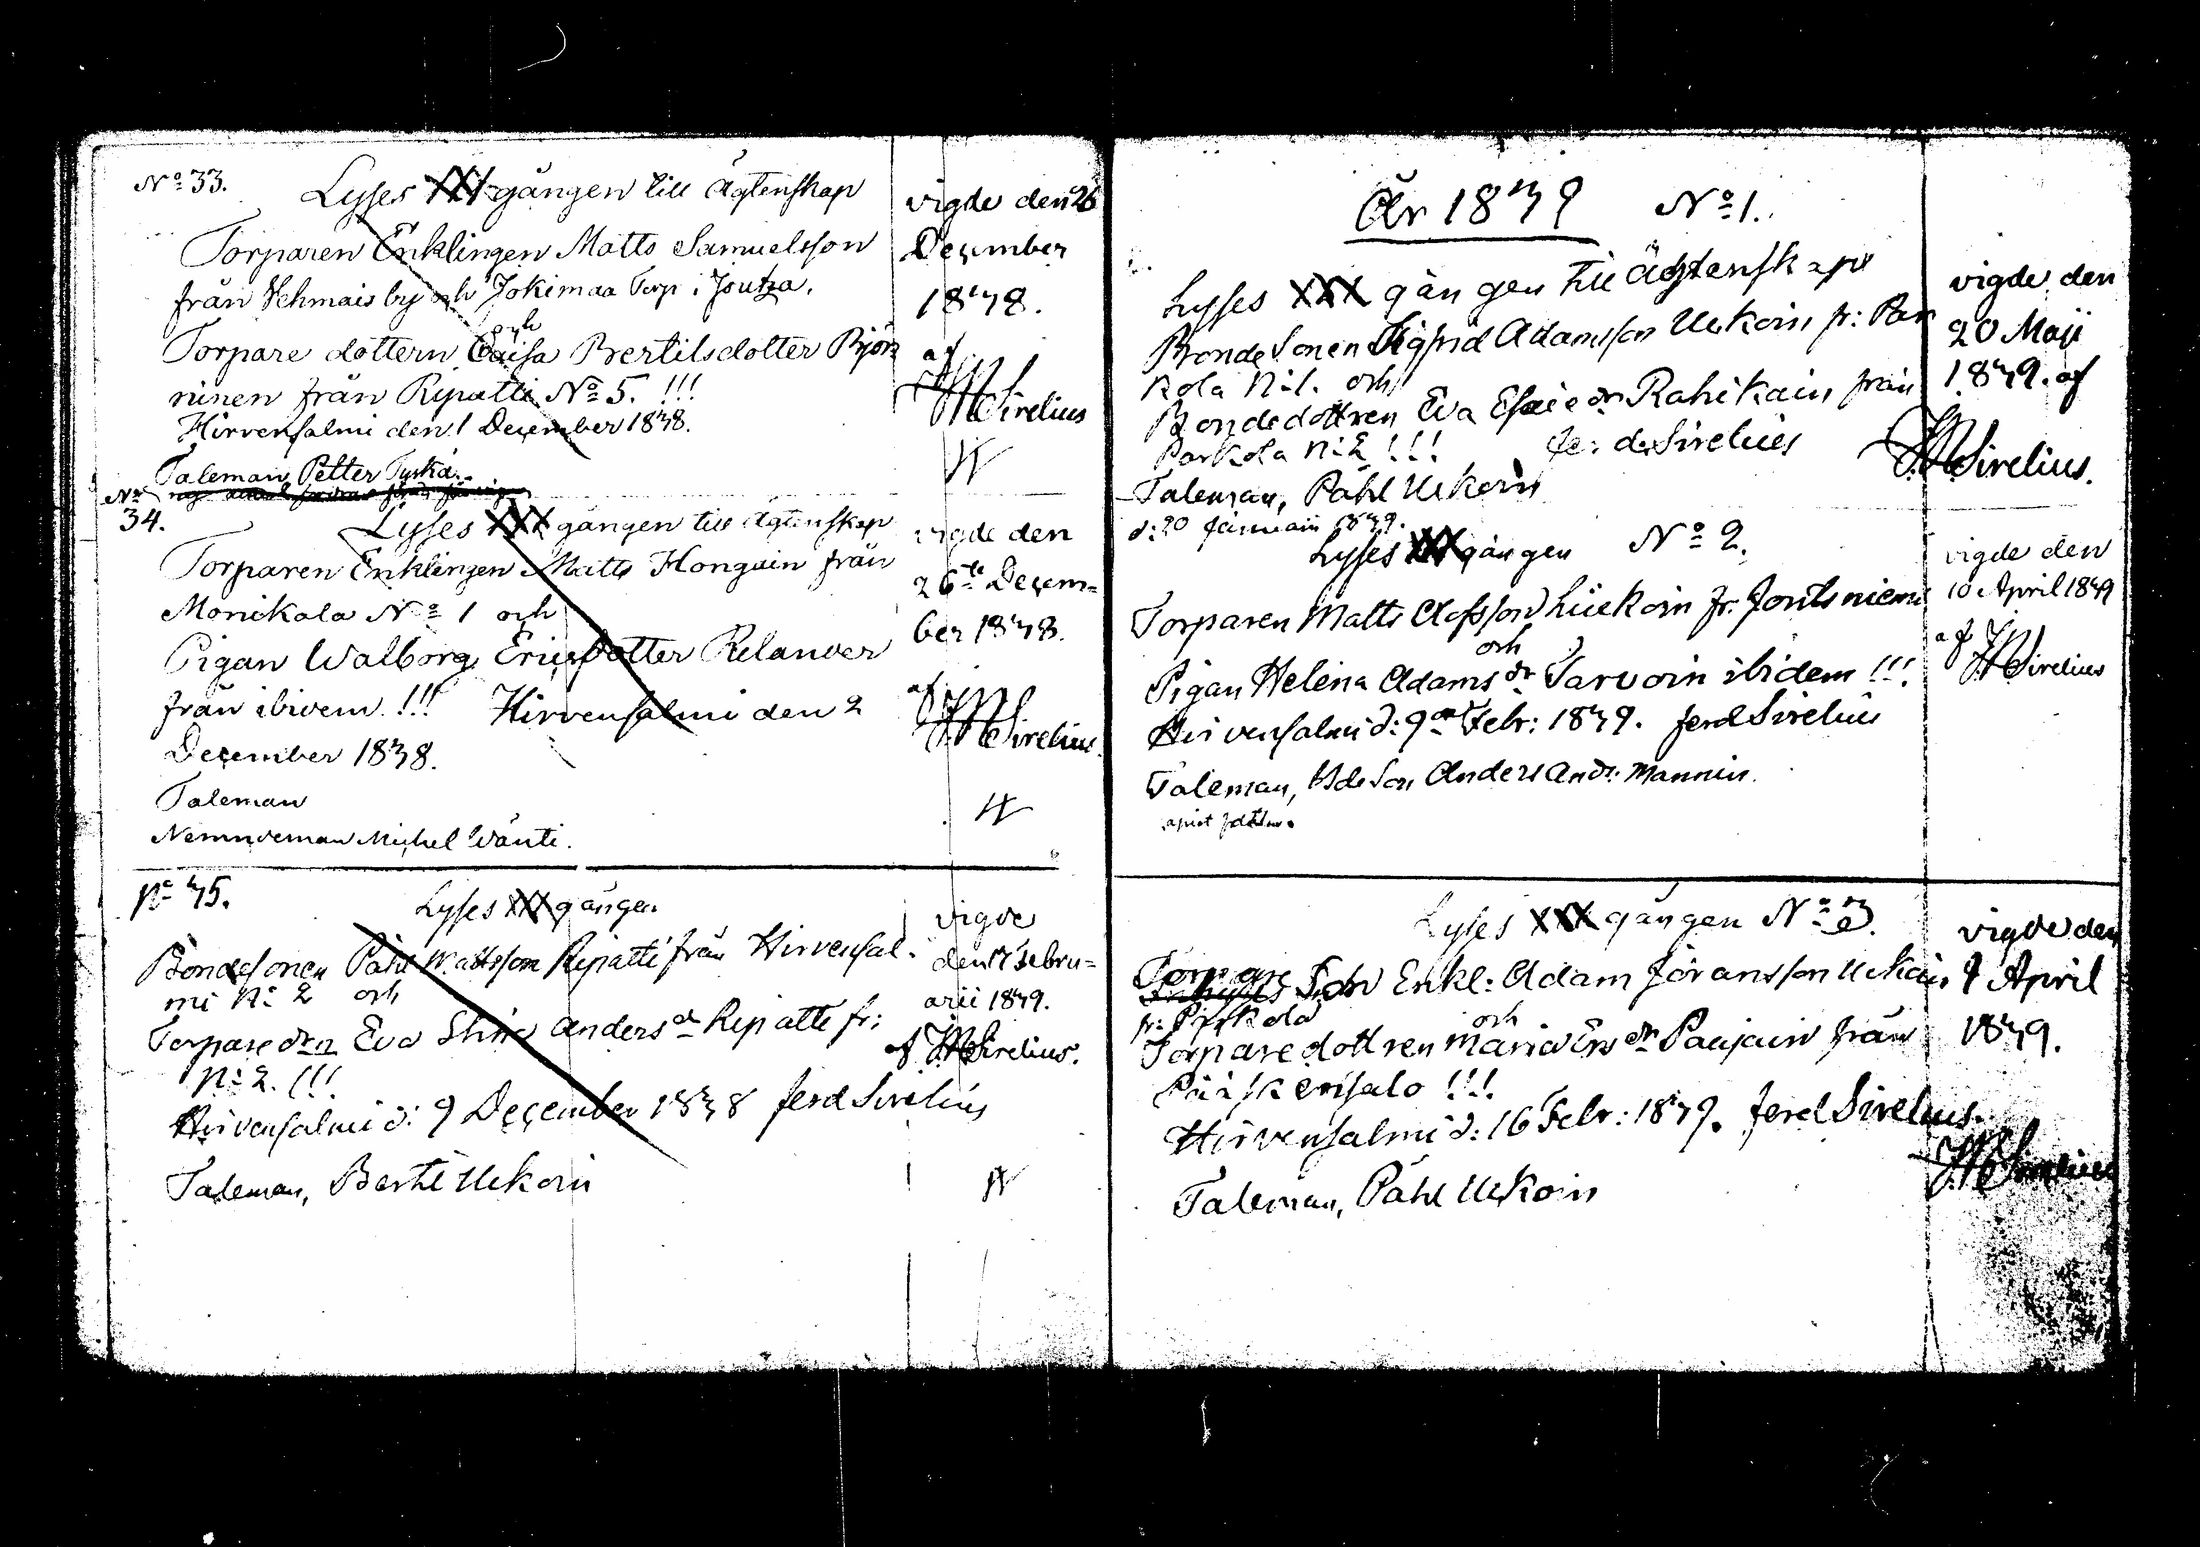 No 33.
Lyses XXX gången till ägtenskap
Torparen Enklingen Matts Samuelsson
från Vehmais by och Jokimaa Torp i Joutza.
och
Torpare dottern Caisa Bertilsdotter Björ
ninen från Ripatti No 5. !!!
Hirvensalmi den 1 December 1838.
Taleman Petter Tyskä.
vigde den 26
December
1838.
af
JMSirelius
No
34.
Lyses XXX gången till ägtenskap
Torparen Enklingen Matts Honguin från
Monikala No 1 och
Pigan Walborg Ericsdotter Relander
från ibidem. !!! Hirvensalmi den 2
December 1838.
Taleman
Nemndeman Michel Wänti.
vigde den
26te Decem=
ber 1838.
af
JMSirelius
No 35.
Lyses XXX gången
Bondesonen Påhl Mattsson Ripatti från Hirvensal=
mi No 2 och
Torpare dr Eva Stina Anders dr Ripatti fr:
No 2. !!!
Hirvensalmi d: 9 December 1838 ferd Sirelius
Taleman, Bertil Uekoin
vigde
den 17 Febru=
arii 1839.
af JMSirelius.
År 1839 No 1.
Lyses XXX gången till ägtenskap
Bonde Sonen Sigfrid Adamsson Uekoin fr: Par
kola No 1. och
Bondedottren Eva Esaie dr Rahikain från
Parkola No 2 !!! fe: d. Sirelius
Taleman, Påhl Uekoin
d: 20 Januarii 1839.
vigde den
20 Maji
1839. af
JMSirelius.
Lyses XXX gången No 2.
Torparen Matts Olofsson Liukoin fr. Joutsniemi
och
Pigan Helena Adams dr Tarvoin ibidem !!!
Hirvensalmi d: 9de Febr: 1839. ferd Sirelius
Taleman, Bde Son Anders And: Mannin.
vigde den
10 April 1839
af JMSirelius
Lyses XXX gången No 3.
Torpare Son Enkl: Adam Jöransson Uekain
fr: Pyskola
och
Torpare dottren Maria Ers dr Paujain från
Pääskensalo !!!
Hirvensalmi d: 16 Febr: 1839. ferd Sirelius.
Taleman, Påhl Uekoin
vigde den
9 April
1839.
JMSirelius